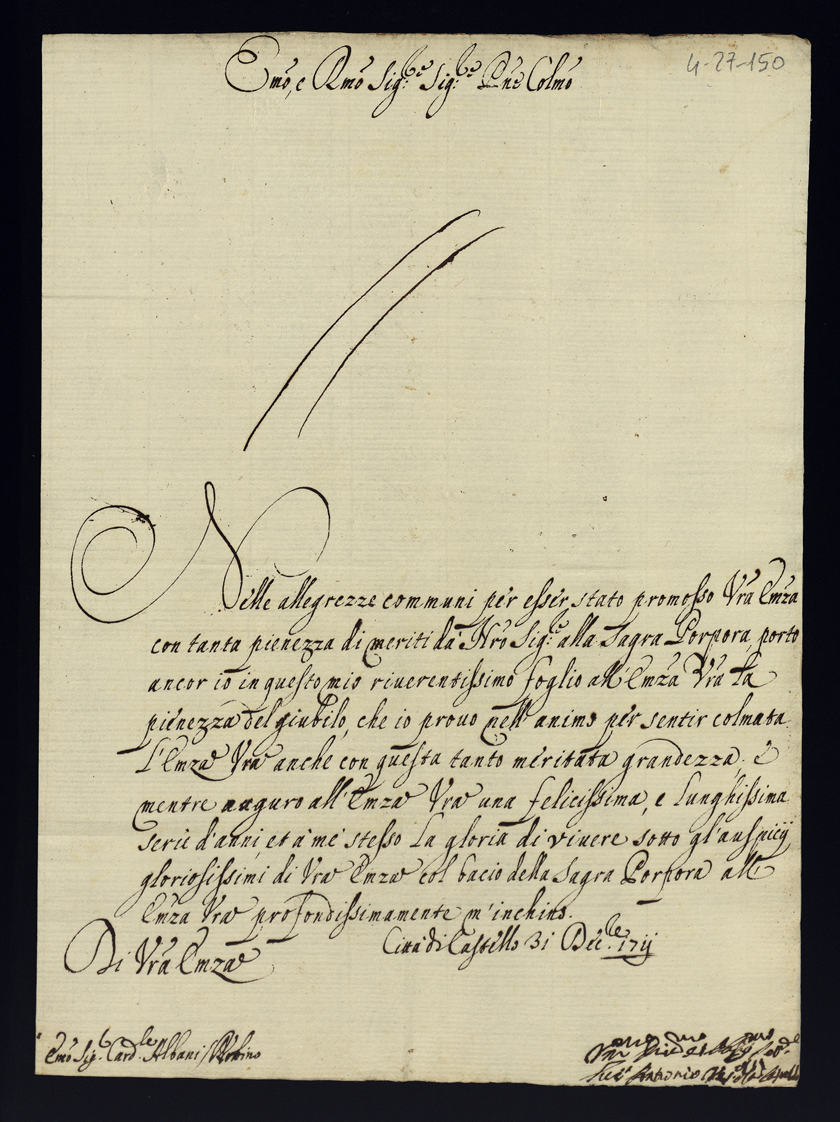 4-27-150
Emo, e Rmo Sig:re Sig:re Pne Colmo
Nelle allegrezze communi per esser stato promosso Vra Emza
con tanta pienezza di meriti da Nro Sig:re alla Sagra Porpora, porto
ancor io in questo mio riverentissimo foglio all'Emza Vra la
pienezza del giubilo, che io provo nell'animo per sentir colmata
L'Emza Vra anche con questa tanto meritata grandezza, e
mentre auguro all'Emza Vra una felicissima, e lunghissima
serie d'anni, et a me stesso la gloria di vivere sotto gl'auspicij
gloriosissimi di Vra Emza col bacio della Sagra Porpora all'
Emza Vra profondissimamente m'inchino.
Di Vra Emza
Città di Castello 31 Xbre 1711
Emo Sig.r Card.le Albani / Urbino
Antonio